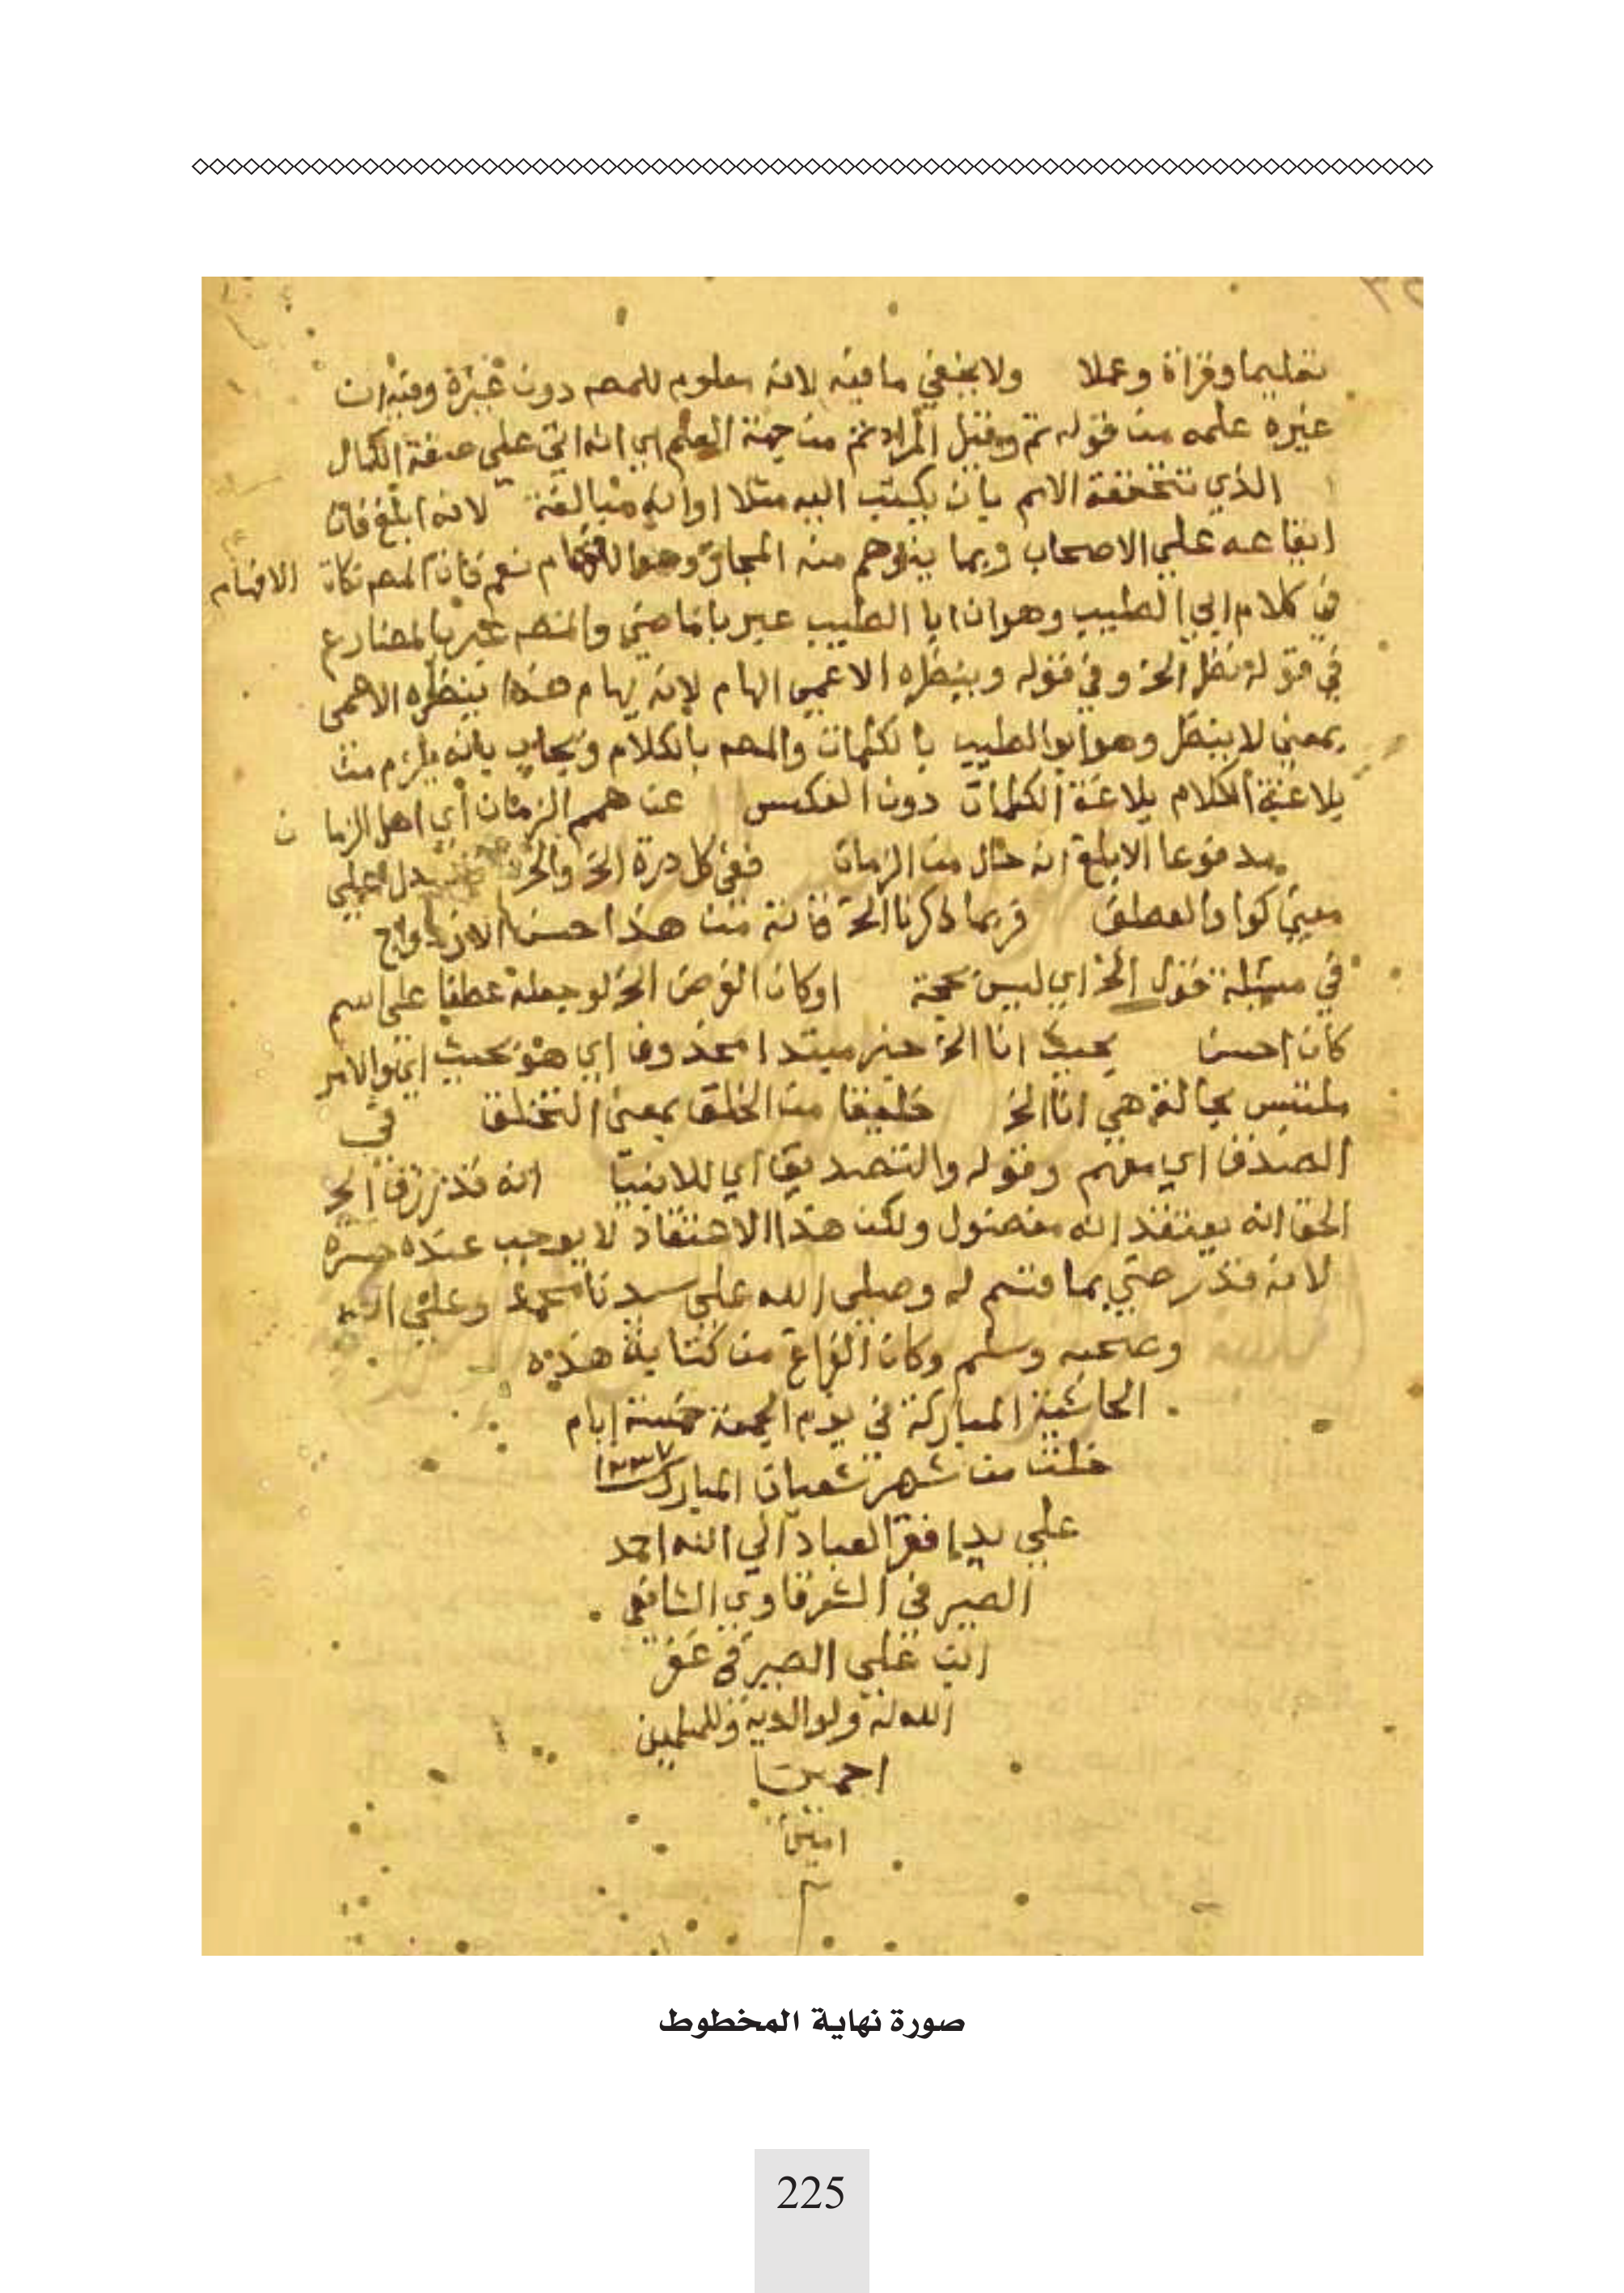 تعليما وقراة وعملا ولا يخفي ما فيه لانه معلوم للمصه دون غيره وفيه ان
غيره علمه من قوله ثم وقيل المراد ثم من جهة العلم اي انه اتي علي صفة الكمال
الذي تتحققه الاسم بان يكتب اليه مثلا او انه مبالغة لانه ابلغ فان
ايقاعه علي الاصحاب ربما يتوهم منه المجاز وهو نعم فان المصه نكاة
الافهام
في كلام ابي الطيب وهو ان ابا الطيب عبر بالماضي والمصه عبر بالمضارع
في قوله نظر الخ وفي قوله وينظره الاعمي الهام لانه يهام هذا ينظره الاعمى
بمعني لا ينظر وهو ابو الطيب بالكلمات والمصه بالكلام ويجاب بانه يلزم من
بلاغة الكلام بلاغة الكلمات دون العكس عن همم الزمان اي اهل الزما
ن
مدفوعا الابلغ انه حال من الزمان ففي كل درة الخ والخ يدل علي
معني كواو العطف فربما ذكرنا الخ فانه من هذا حسن الازدواج
في مسئلة قول الخ اي ليس بحجة او كان الغرض الخ لو جعله عطفا علي اسم
كان احسن بحيث انا الخ خبر مبتدا محذوف اي هو بحيث اي والامر
ملتبس بحالة هي انا الخ خليقا من الخلق بمعني التخلق في
الصدق اي معهم وقوله والتصديق اي للانبيا انه قد رزق الخ
الحق انه يعتقد انه مفضول ولكن هذا الاعتقاد لا يوجب عنده حسرة
لانه قد رضي بما قسم له وصلى الله علي سيدنا محمد وعلي اله
وصحبه وسلم وكان الفراغ من كتابة هذه
الحاشية المباركة في يوم الجمعة خمسة ايام
خلت من شهر شعبان المبارك ١٢٣٧
علي يد افقر العباد الي الله احمد
الصيرفي الشرقاوي الشافعي
ابن علي الصيرفي غفر
الله له ولوالديه وللمسلمين
اجمعين
امين
صورة نهاية المخطوط
225